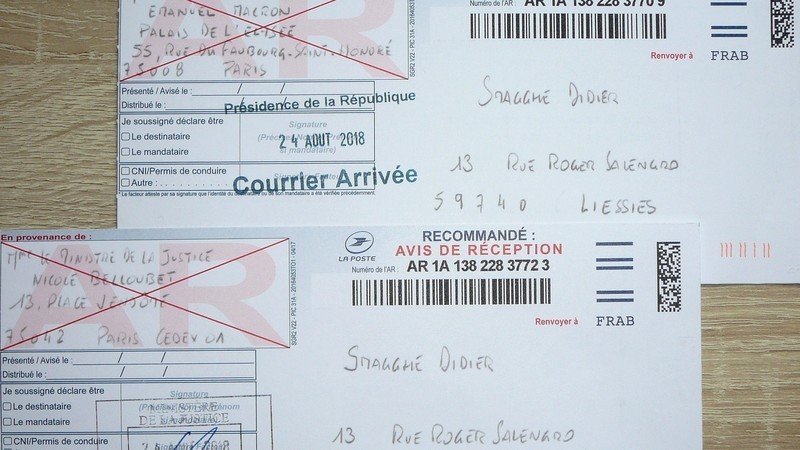 EMANUEL MACRON
PALAIS DE L'ELISEE
55, RUE DU FAUBOURG-SAINT-HONORÉ
75008 PARIS
AR 1A 138 228 3770 9
Numéro de l'AR :
Renvoyer à
FRAB
SGR2 V22 - PIC 31A
Présenté / Avisé le : / /
Distribué le : / /
Présidence de la République
Je soussigné déclare être
Le destinataire
Le mandataire
Signature
si mandataire)
24 AOUT 2018
CNI/Permis de conduire
Autre :
Signature Facteur
Courrier Arrivée
Le facteur atteste par sa signature que l'identité du destinataire ou de son mandataire a été vérifiée précédemment.
SMAGGHE DIDIER
13 RUE ROGER SALENGRO
59740 LIESSIES
En provenance de :
Mme LE MINISTRE DE LA JUSTICE
NICOLE BELLOUBET
13, PLACE VENDÔME
75042 PARIS CEDEX 01
AR
SGR2 V22 - PIC 31A
LA POSTE
RECOMMANDÉ :
AVIS DE RÉCEPTION
Numéro de l'AR :
AR 1A 138 228 3772 3
Renvoyer à
FRAB
Présenté / Avisé le : / /
Distribué le : / /
Je soussigné déclare être
Le destinataire
Le mandataire
Signature
DE LA JUSTICE
CNI/Permis de conduire
SMAGGHE DIDIER
13 RUE ROGER SALENGRO